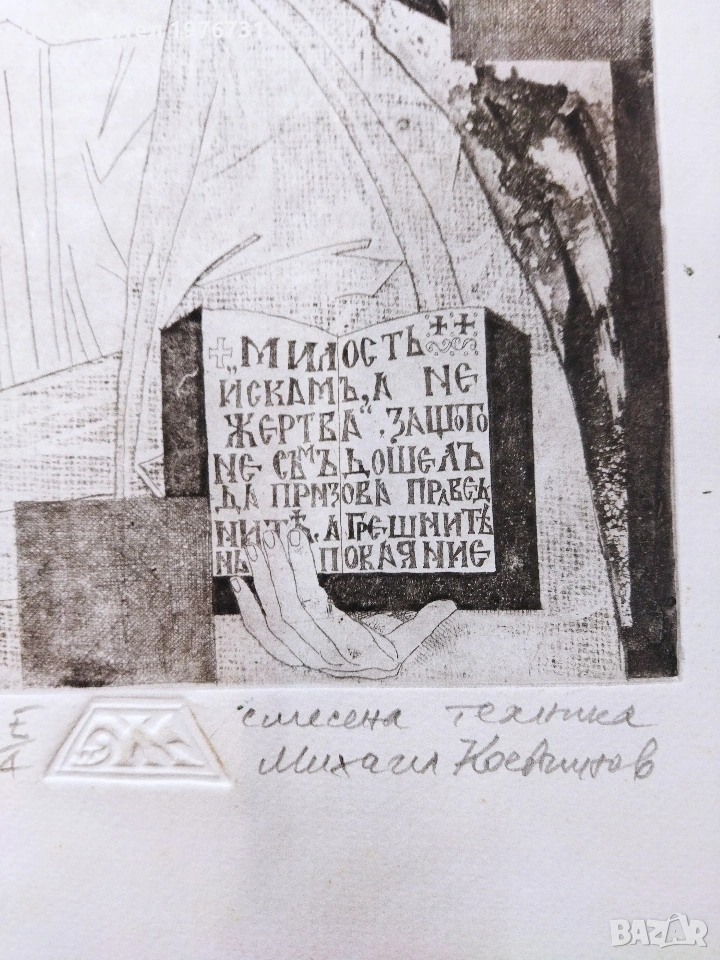 1976731
+ „МИЛОСТЬ ++
ИСКАМЪ, А НЕ
ЖЕРТВА“. ЗАЩОТО
НЕ СЪМЪ ДОШЕЛЪ
ДА ПРИЗОВА ПРАВЕД
НИТѢ, А ГРЕШНИТѢ
ПОКАЯНИЕ
Е/А
смесена техника
Михаил
BAZAR